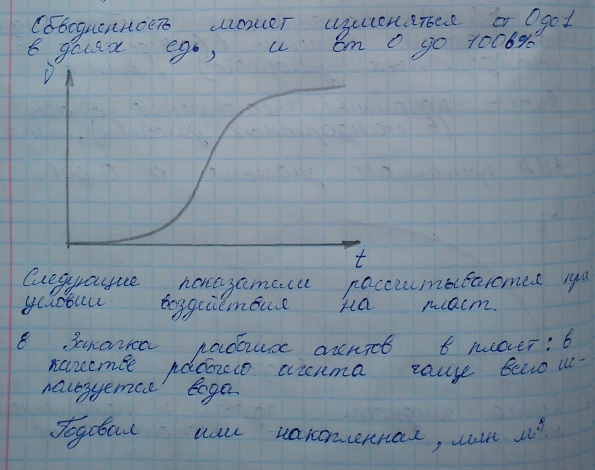 Обводненность может изменяться от 0 до 1
в долях ед., и от 0 до 100 в %
t
Следующие показатели рассчитываются при
условии воздействия на пласт.
8 Закачка рабочих агентов в пласт: в
качестве рабочего агента чаще всего ис-
пользуется вода.
Годовая или накопленная, млн м³.